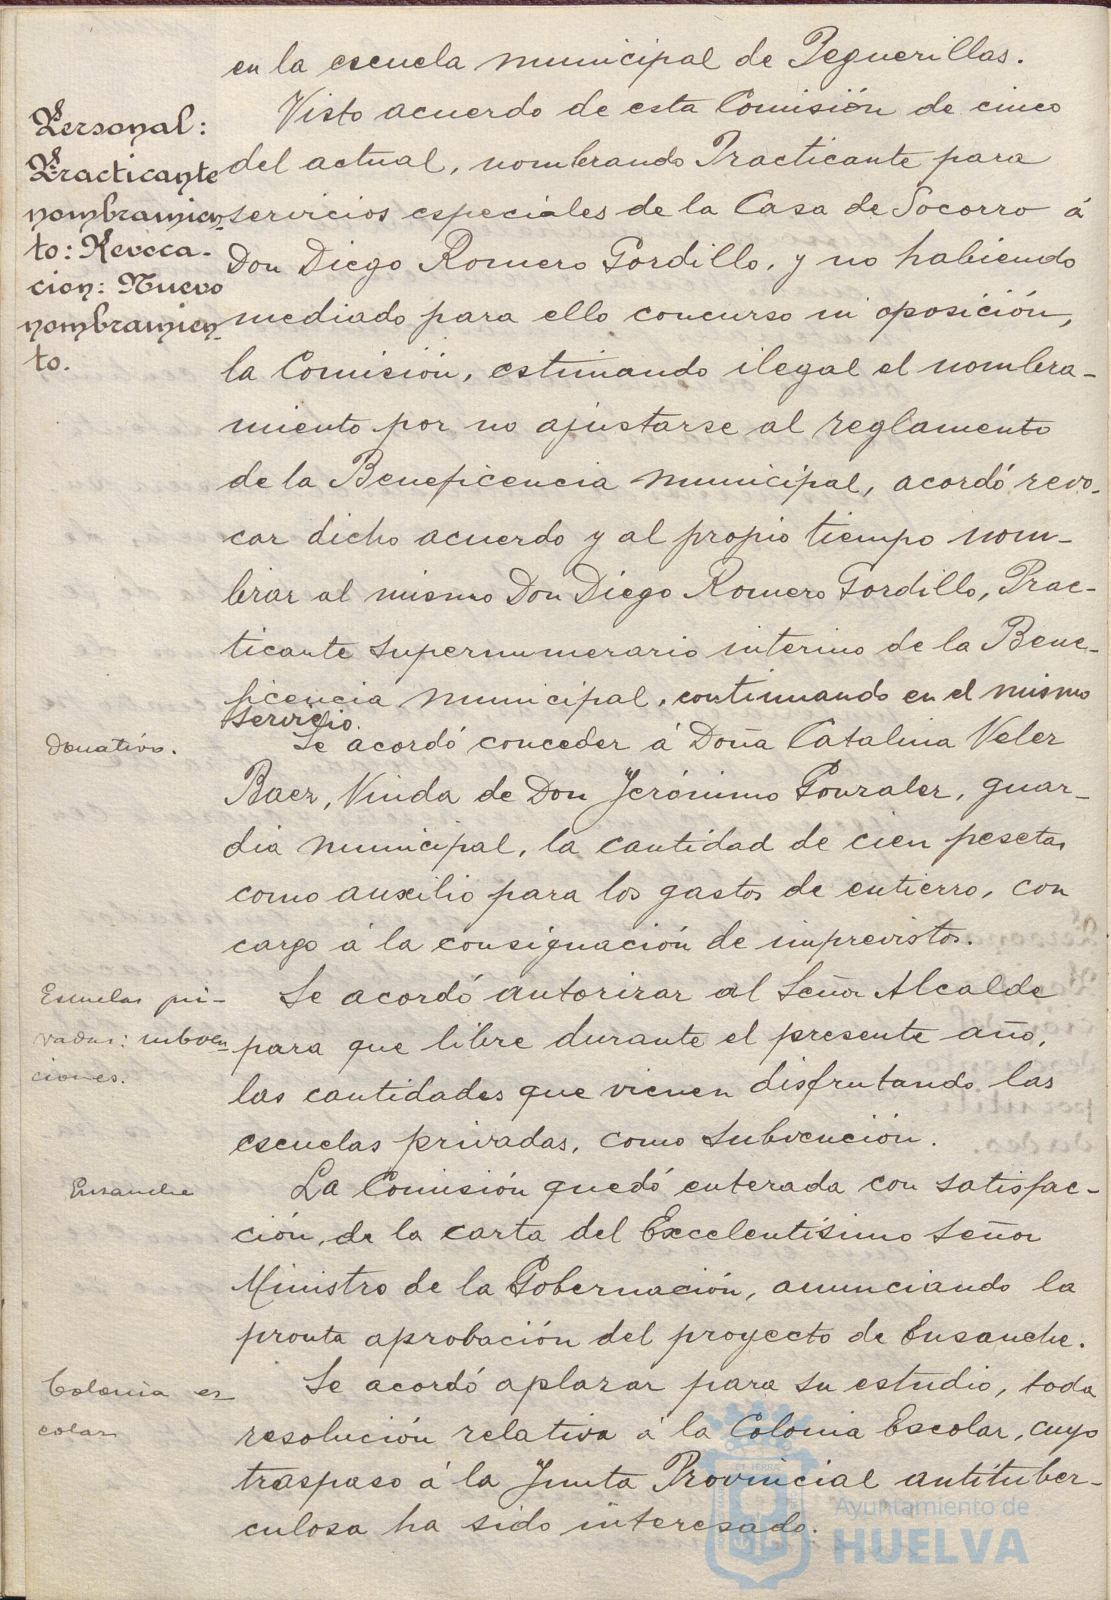 en la escuela municipal de Peguerillas.
Personal:
Practicante
nombramien-
to: Revoca-
cion: Nuevo
nombramien-
to.
Visto acuerdo de esta Comisión de cinco
del actual, nombrando Practicante para
servicios especiales de la Casa de Socorro á
Don Diego Romero Gordillo, y no habiendo
mediado para ello concurso ni oposición,
la Comisión, estimando ilegal el nombra-
miento por no ajustarse al reglamento
de la Beneficencia municipal, acordó revo-
car dicho acuerdo y al propio tiempo nom-
brar al mismo Don Diego Romero Gordillo, Prac-
ticante supernumerario interino de la Bene-
ficencia municipal, continuando en el mismo
servicio.
Donativo.
Se acordó conceder á Doña Catalina Velez
Baez, Viuda de Don Jerónimo Gonzalez, guar-
dia municipal, la cantidad de cien pesetas
como auxilio para los gastos de entierro, con
cargo á la consignación de imprevistos.
Escuelas pri-
vadas: subven-
ciones.
Se acordó autorizar al Señor Alcalde
para que libre durante el presente año,
las cantidades que vienen disfrutando las
escuelas privadas, como subvención.
Ensanche
La Comisión quedó enterada con satisfac-
ción, de la carta del Excelentísimo Señor
Ministro de la Gobernación, anunciando la
pronta aprobación del proyecto de Ensanche.
Colonia es-
colar
Se acordó aplazar para su estudio, toda
resolución relativa á la Colonia Escolar, cuyo
traspaso á la Junta Provincial antituber-
culosa ha sido interesado.
Ayuntamiento de
HUELVA